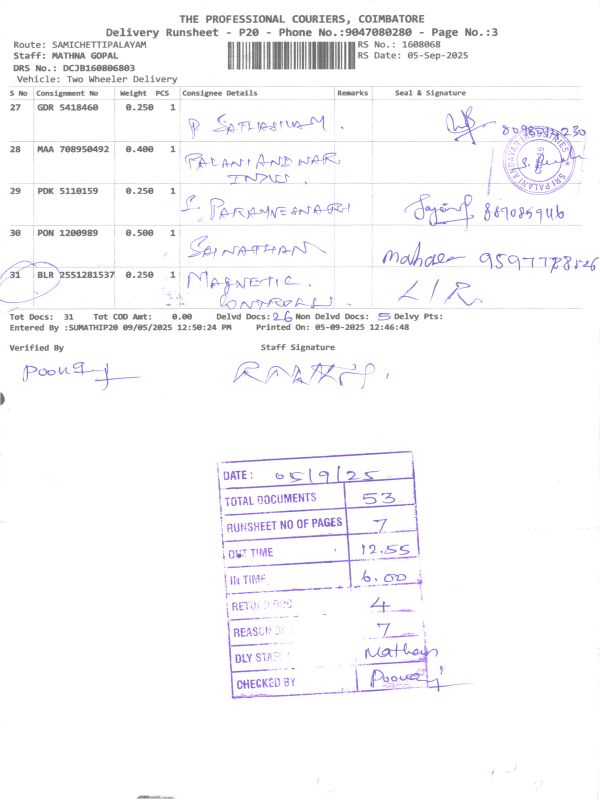 THE PROFESSIONAL COURIERS, COIMBATORE
Delivery Runsheet - P20 - Phone No.:9047080280 - Page No.:3
Route: SAMICHETTIPALAYAM RS No.: 1608068
Staff: MATHNA GOPAL RS Date: 05-Sep-2025
DRS No.: DCJB160806803
Vehicle: Two Wheeler Delivery
S No Consignment No Weight PCS Consignee Details Remarks Seal & Signature
27 GDR 5418460 0.250 1
28 MAA 708950492 0.400 1 PALANIANDAVAR
INDUS.
SRI PALANI ANDAVAR INDUSTRIES
29 PDK 5110159 0.250 1 S. PARAMESWARI
30 PON 1200989 0.500 1 SAINATHAN
31 BLR 2551281537 0.250 1 MAGNETIC L/R.
CONTROLLS.
Tot Docs: 31 Tot COD Amt: 0.00 Delvd Docs: 26 Non Delvd Docs: 5 Delvy Pts:
Entered By :SUMATHIP20 09/05/2025 12:50:24 PM Printed On: 05-09-2025 12:46:48
Verified By Staff Signature
DATE: 05/9/25
TOTAL DOCUMENTS 53
RUNSHEET NO OF PAGES 7
OUT TIME 12.55
IN TIME 6.00
RETURN 4
REASON 7
DLY STAFF
CHECKED BY